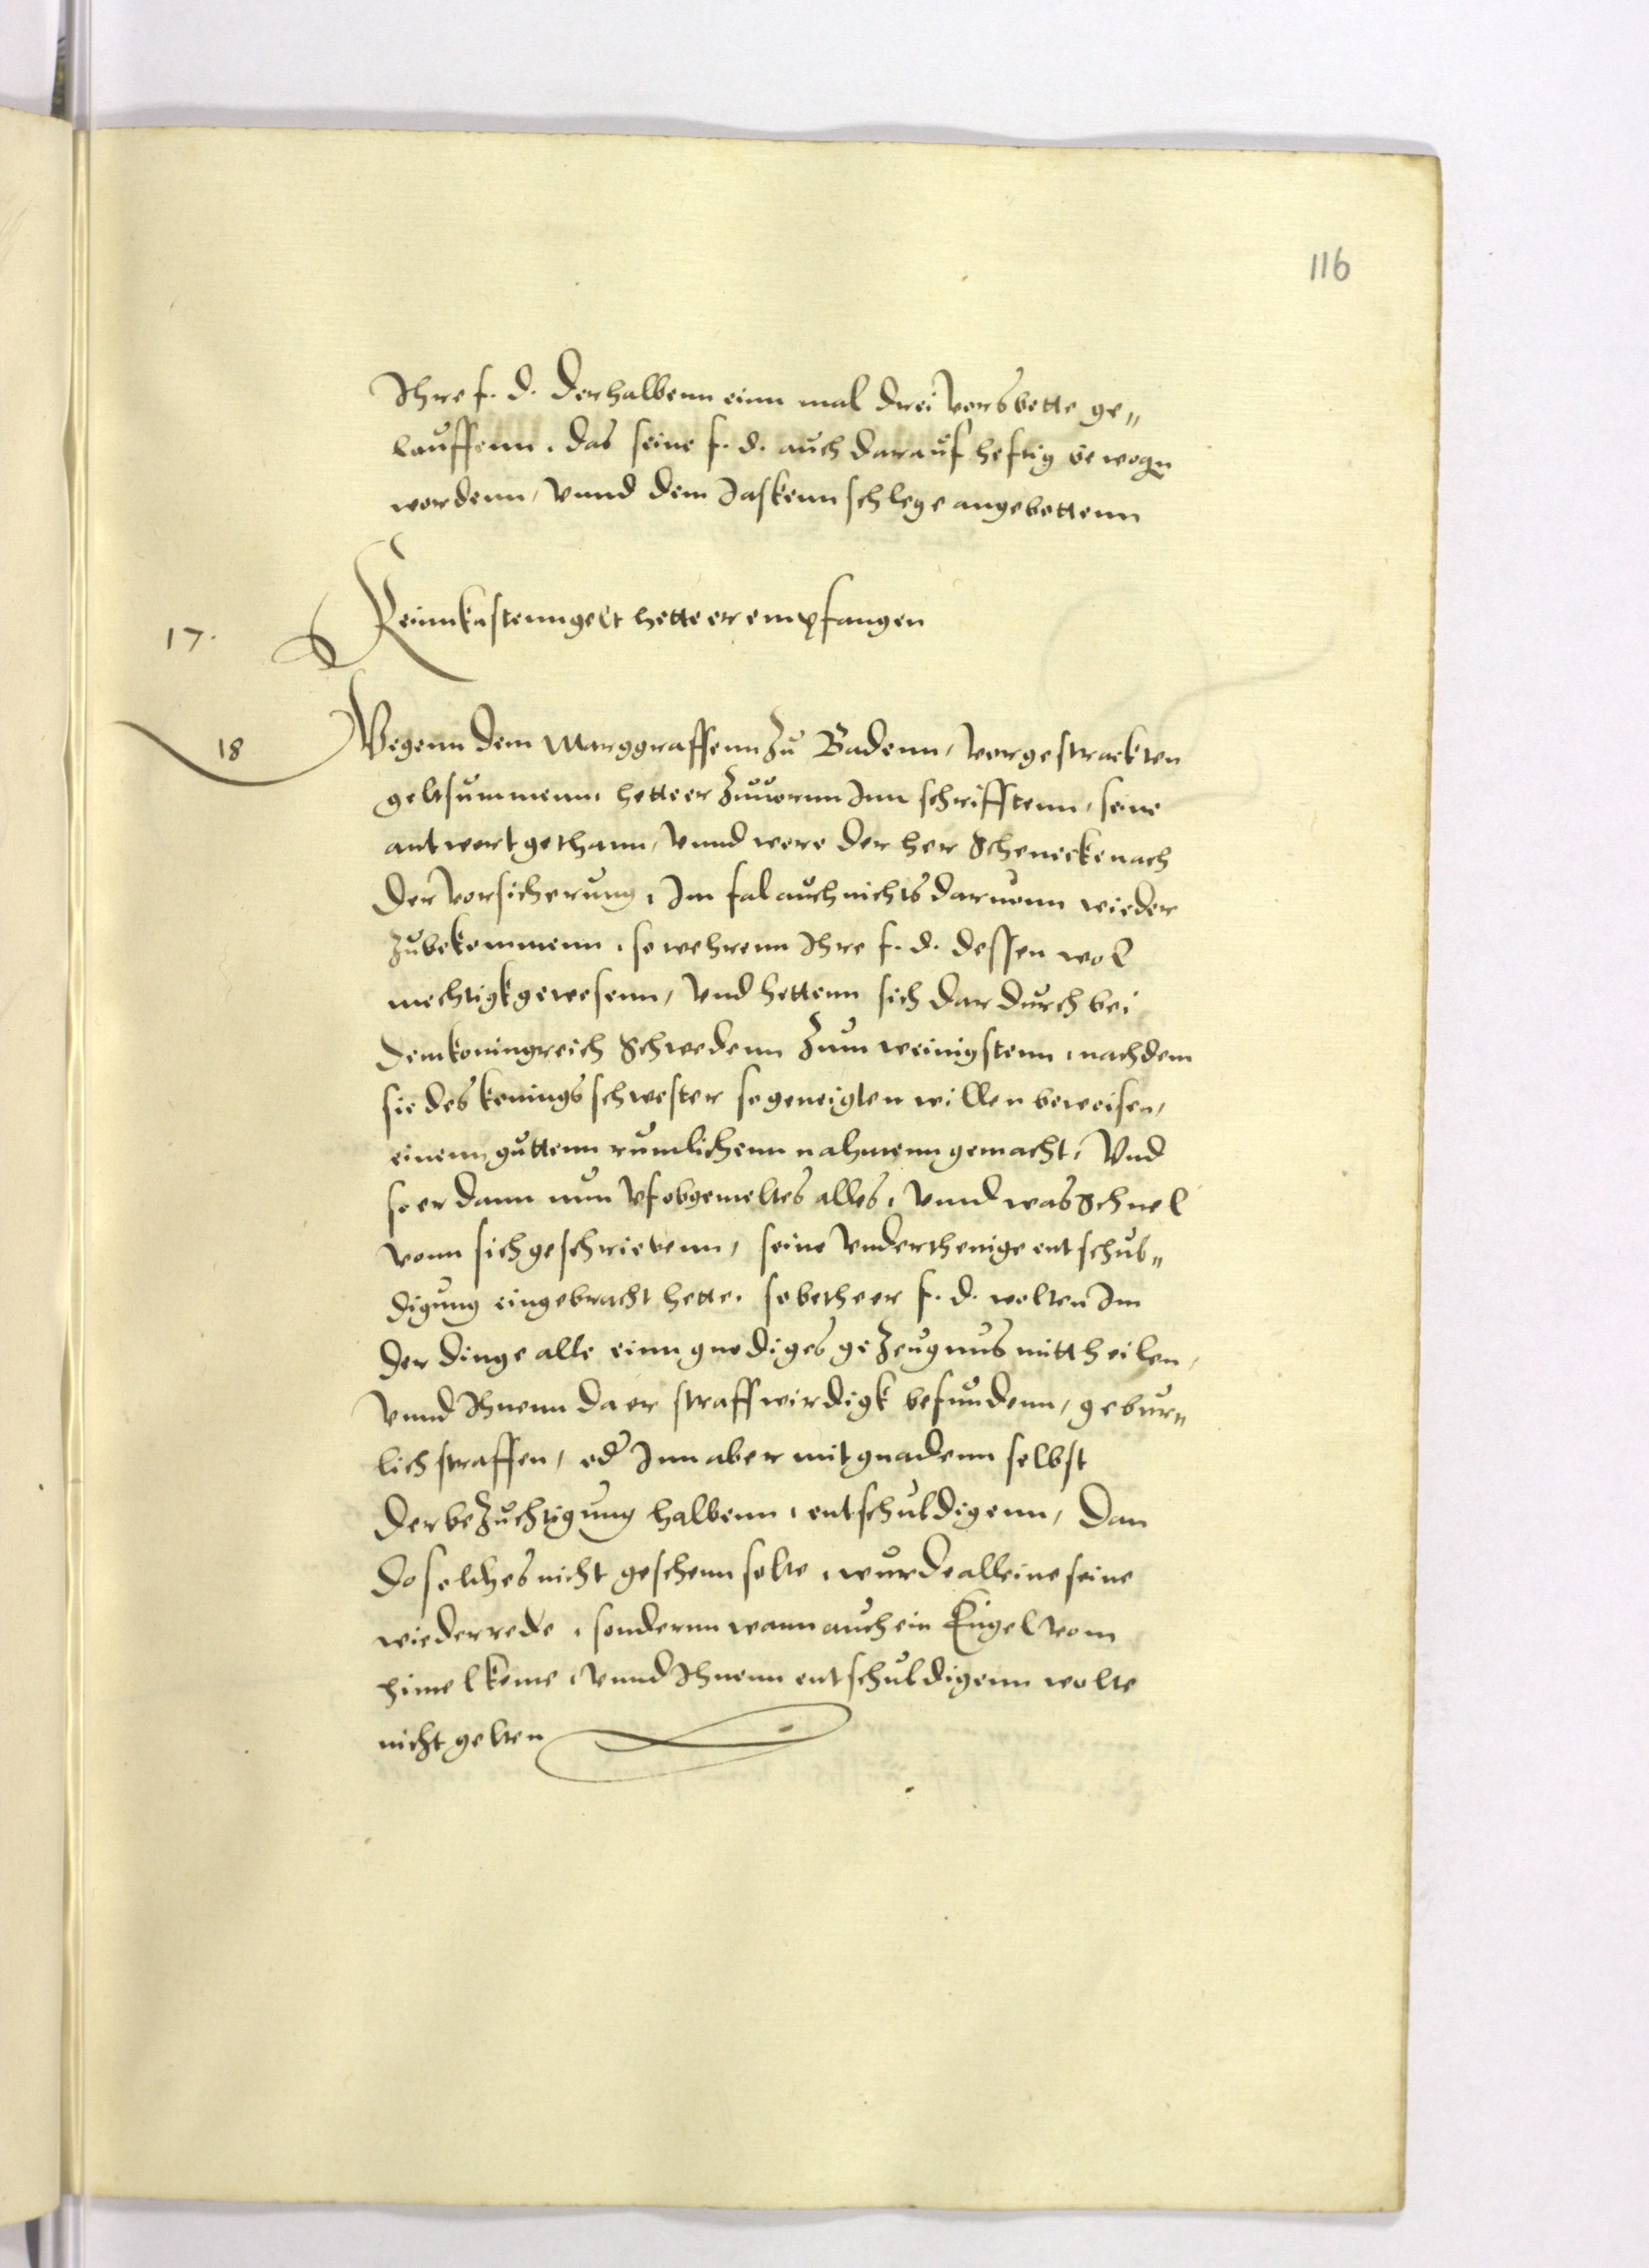 116
Ihre f. d. derhalbenn einn mal drei vorsbette ge„
lauffenn. das seine f. d. auch darauf heftig bewogn
wordenn, vnnd dem Jaskenn schlege angebottenn
17. Keinn kastenngelt hette er empfangen
18 Wegenn dem Marggraffenn zu Badenn, vorgestrackten
geltsummenn, hette er zuuornn Inn schrifftenn, seine
antwort gethann, vnnd were der her Scheneicke nach
der vorsicherung, Im fal auch nichts daruonn wieder
zubekommenn, so wehrenn Ihre f. d. dessen wol
mechtigk gewesenn, vnd hettenn sich dardurch bei
dem koningreich Schwedenn zum weinigstenn, nachdem
sie des konings schwester so geneigten willen beweisen,
einenn guttenn rumlichenn nahmenn gemacht, Vnd
so er dann nun vf obgemeltes alles, vnnd was Schnel
vonn sich geschriebenn, seine vnderthenige entschul„
digung eingebracht hette. so bethe er f. d. wolten Im
der dinge alle einn gnediges gezeugnus mittheilen,
vnnd Ihnenn da er straffwirdigk befundenn, gebur„
lich straffen, od Inn aber mit gnadenn selbst
der bezuchtigung halbenn, entschuldigenn, dan
do solches nicht geschenn solte, wurde alleine seine
wiederrede, sondernn wann auch ein Engel vom
himel keme, vnnd Ihnenn entschuldigenn wolte
nicht gelten